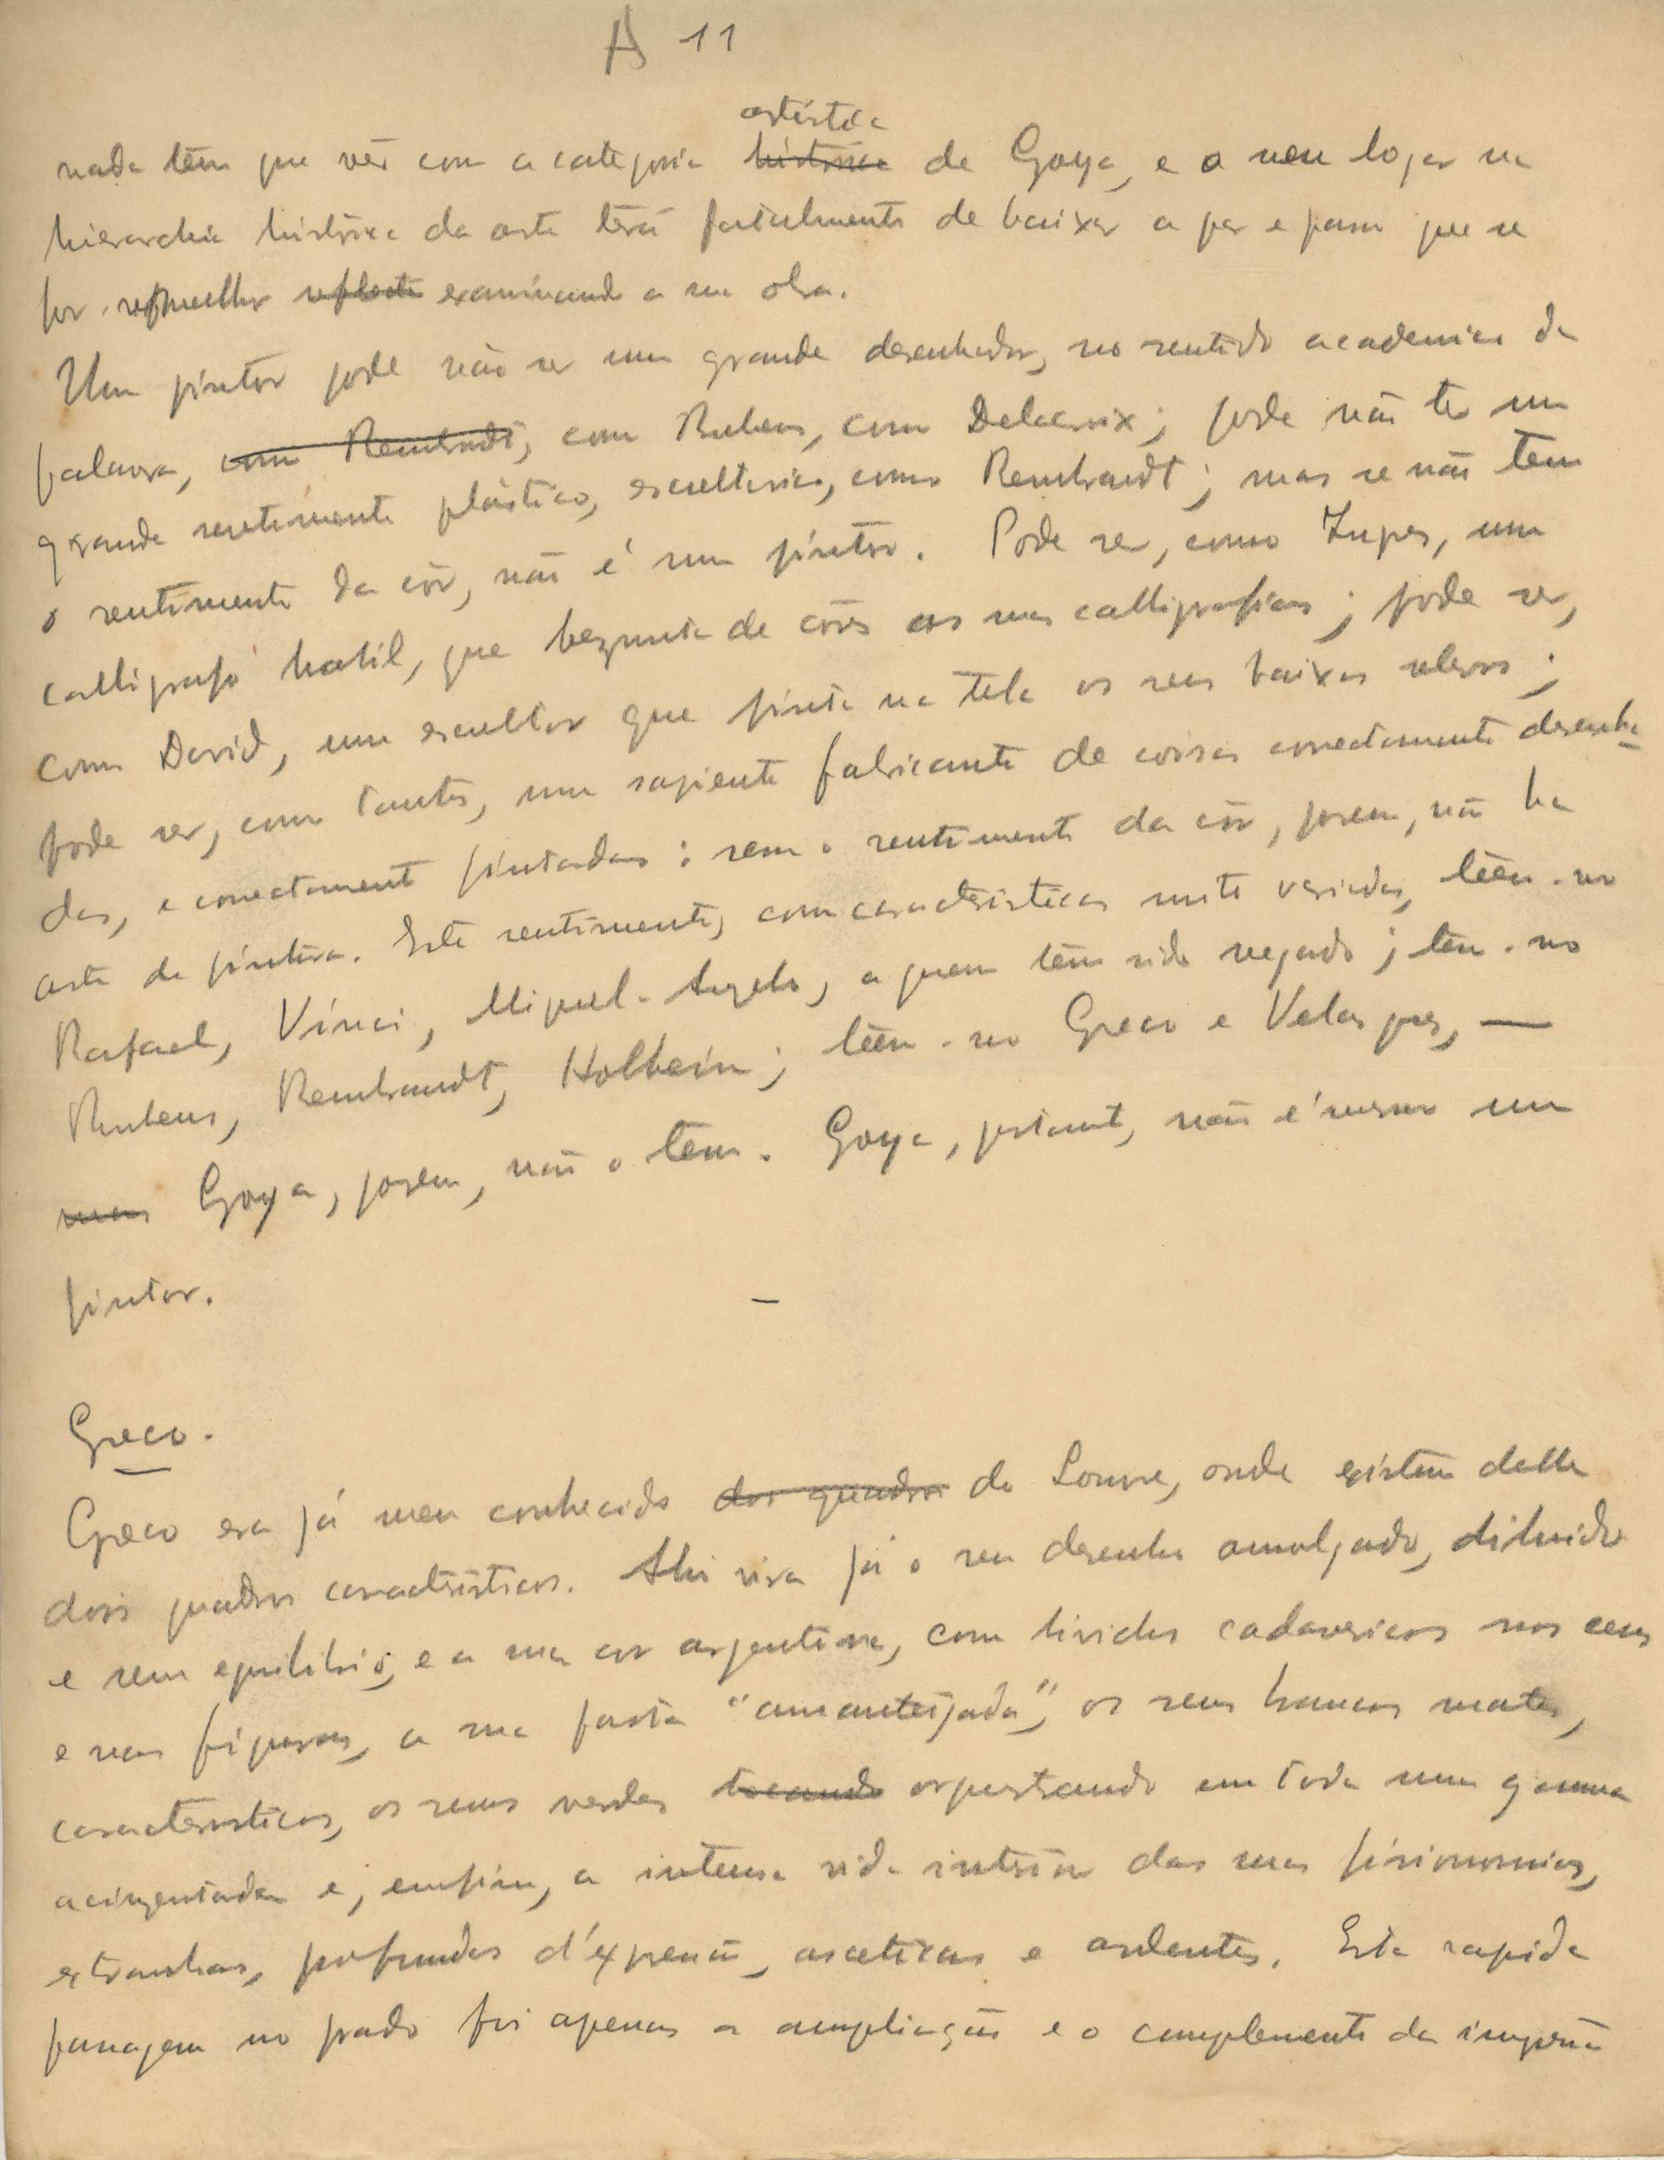 A 11
artistica
nada têm que vêr com a categoria historica de Goya, e o seu logar na
hierarchia historica da arte terá fatalmente de baixar a par e passo que se
for examinando a sua obra.
Um pintor pode não ser um grande desenhador, no sentido academico da
palavra, como Rembrandt, como Rubens, como Delacroix; pode não ter um
grande sentimento plástico, esculturico, como Rembrandt; mas se não tem
o sentimento da côr, não é um pintor. Pode ser, como Ingres, um
calligrapho habil, que bezunta de côres as suas calligrafias; pode ser,
como David, um escultor que pinta na tela os seus baixos relevos;
pode ser, como tantos, um sapiente fabricante de coisas correctamente desenha-
das, e correctamente pintadas: sem o sentimento da côr, porem, não ha
arte de pintura. Este sentimento, com caracteristicas muito variadas, têem-no
Rafael, Vinci, Miguel-Angelo, a quem têm sido negado; têm-no
Rubens, Rembrandt, Holbein; têem-no Greco e Velasquez, —
mas Goya, porem, não o tem. Goya, portanto, não é mesmo um
pintor.
—
Greco.
Greco era já meu conhecido dos quadros do Louvre, onde existem delle
dois quadros caracteristicos. Ahi vira já o seu desenho amolgado, diluido
e sem equilibrio, e a sua cor argentina, com lividos cadavericos nos ceus
e nas figuras, a sua pasta "amanteigada", os seus brancos mates,
caracteristicos, os seus verdes tocando orquestrando em toda uma gamma
acinzentada e, emfim, a intensa vida interior das suas fisionomias,
extranhas, profundas d'expressão, asceticas e ardentes. Esta rapida
passagem no prado foi apenas a ampliação e o complemento da impressã